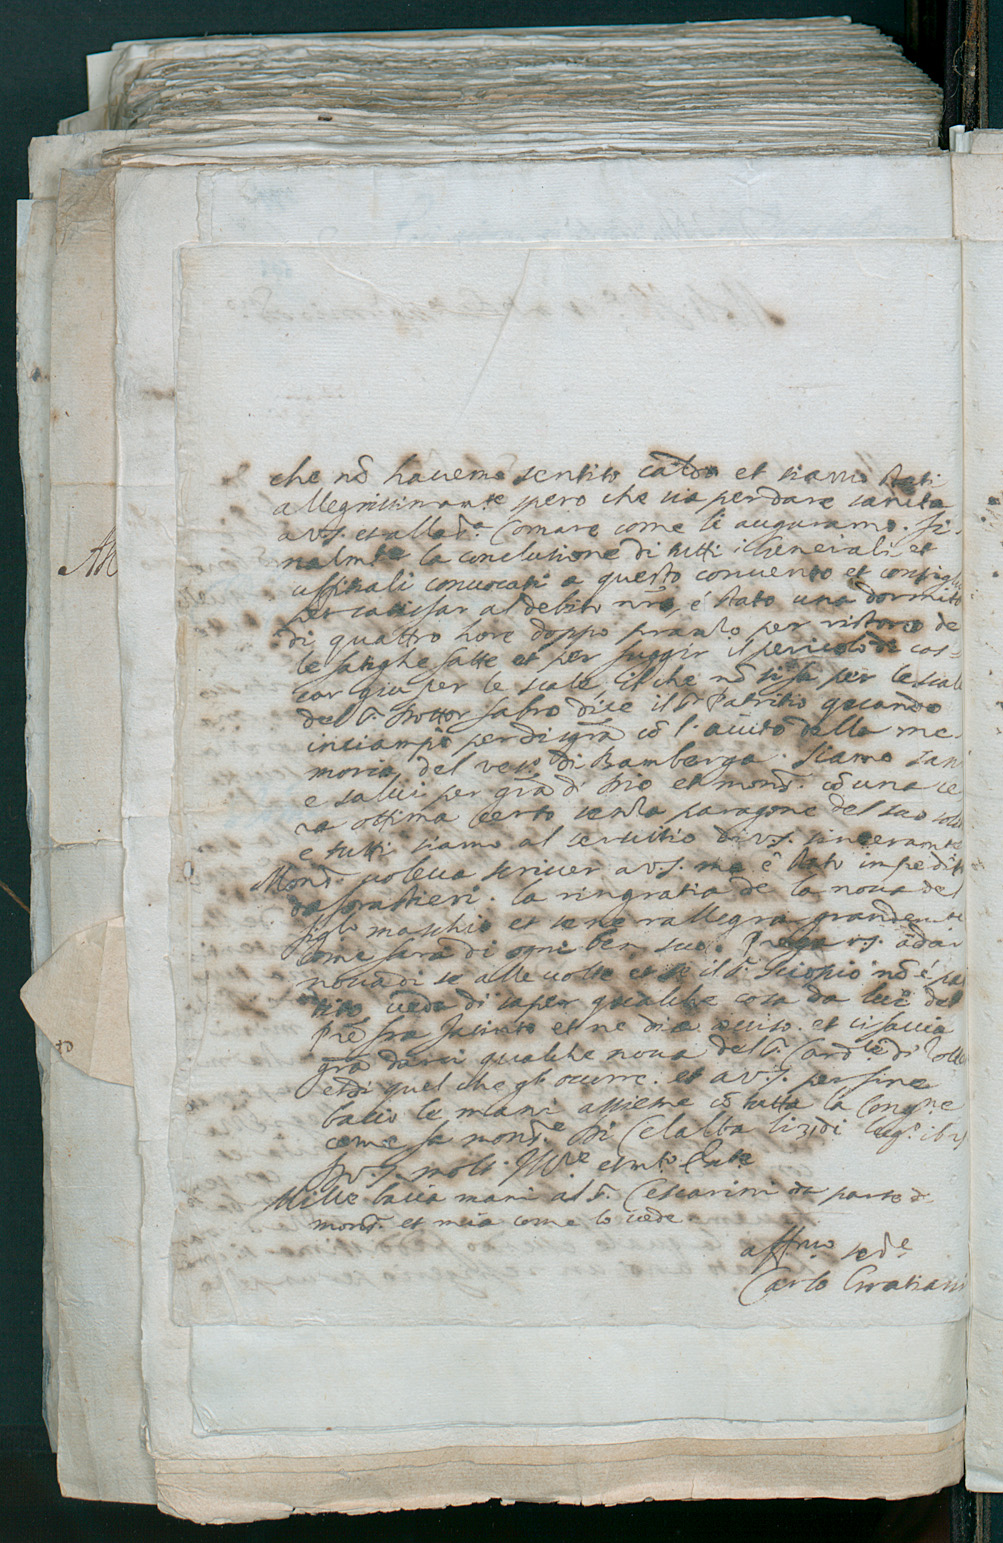 che nō havemo sentito caldo et siamo stati
allegrissimam.te spero che sia per dare sanità
a V.S. et alla S.ra Comare come li auguramo. fi-
nalm.te la conclusione di tutti i Generali et
uffitiali convocati a questo convento et consiglio
per satisfar al debito nr̄o, é stato una dormita
di quattro hore doppo pranso per ristoro de
le fatighe fatte et per fuggir il pericolo di cas-
car giu per le scale, il che nō si fa per le scale
del S. Dottor Fabro dice il S.r Patritio quando
inciampò per disgr̄a cō l'aviso della me-
moria del vesc.o di Bamberga. Siamo sani
e salvi per gr̄a di Dio et mons.r cō una ce-
ra ottima certo senza paragone del suo solito
e tutti siamo al servitio di V.S. sinceramente
Mons.r voleva scriver a V.S. ma é stato impedito
da forastieri. la ringratia de la nova del
figlio maschio et se ne rallegra grandem.te
come farà di ogni ben suo. Prega V.S. a dar
nova di se alle volte et se il S. Sciopio nō é par-
tito veda di saper qualche cosa da lui del
Pr̄e fra Jacinto et ne dia aviso. et ci faccia
gr̄a darci qualche nova del S. Card.le di Zoller
et di quel che gli occurre. et a V.S. per fine
bacio le mani assieme cō tutta la Cong.ne
come fa mons.re Di Celalba li 23 di lug.o
Di V.S. molt. Ill.re et m.to Ecc.te
Mille bacia mani al S. Cesarini da parte di
mons.r et mia come lo vede
aff.mo ser.e
Carlo Gratiani